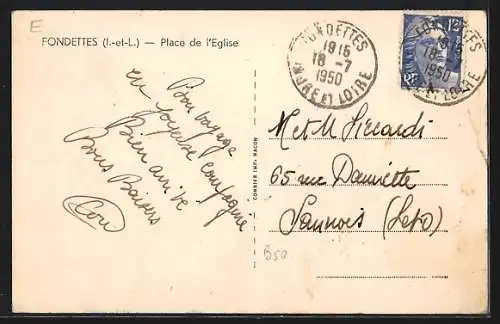 E
FONDETTES (I.-et-L.) — Place de l'Eglise
FONDETTES
1915
18 -7
1950
INDRE ET LOIRE
FONDETTES
18
1950
LOIRE
12F
RF
Bon voyage
en joyeuse compagnie
Bien arrivé
Bons Baisers
COMBIER IMP. MACON
M et M Siccardi
65 rue Damiette
Sannois (S et O)
B50